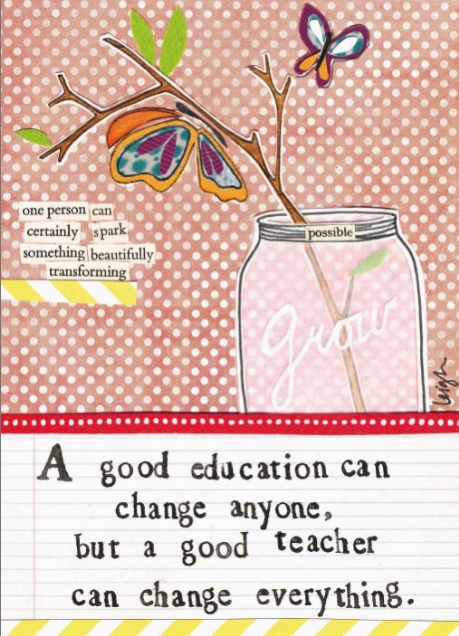 one person can
certainly spark
something beautifully
transforming
possible
grow
leigh
A good education can
change anyone,
but a good teacher
can change everything.